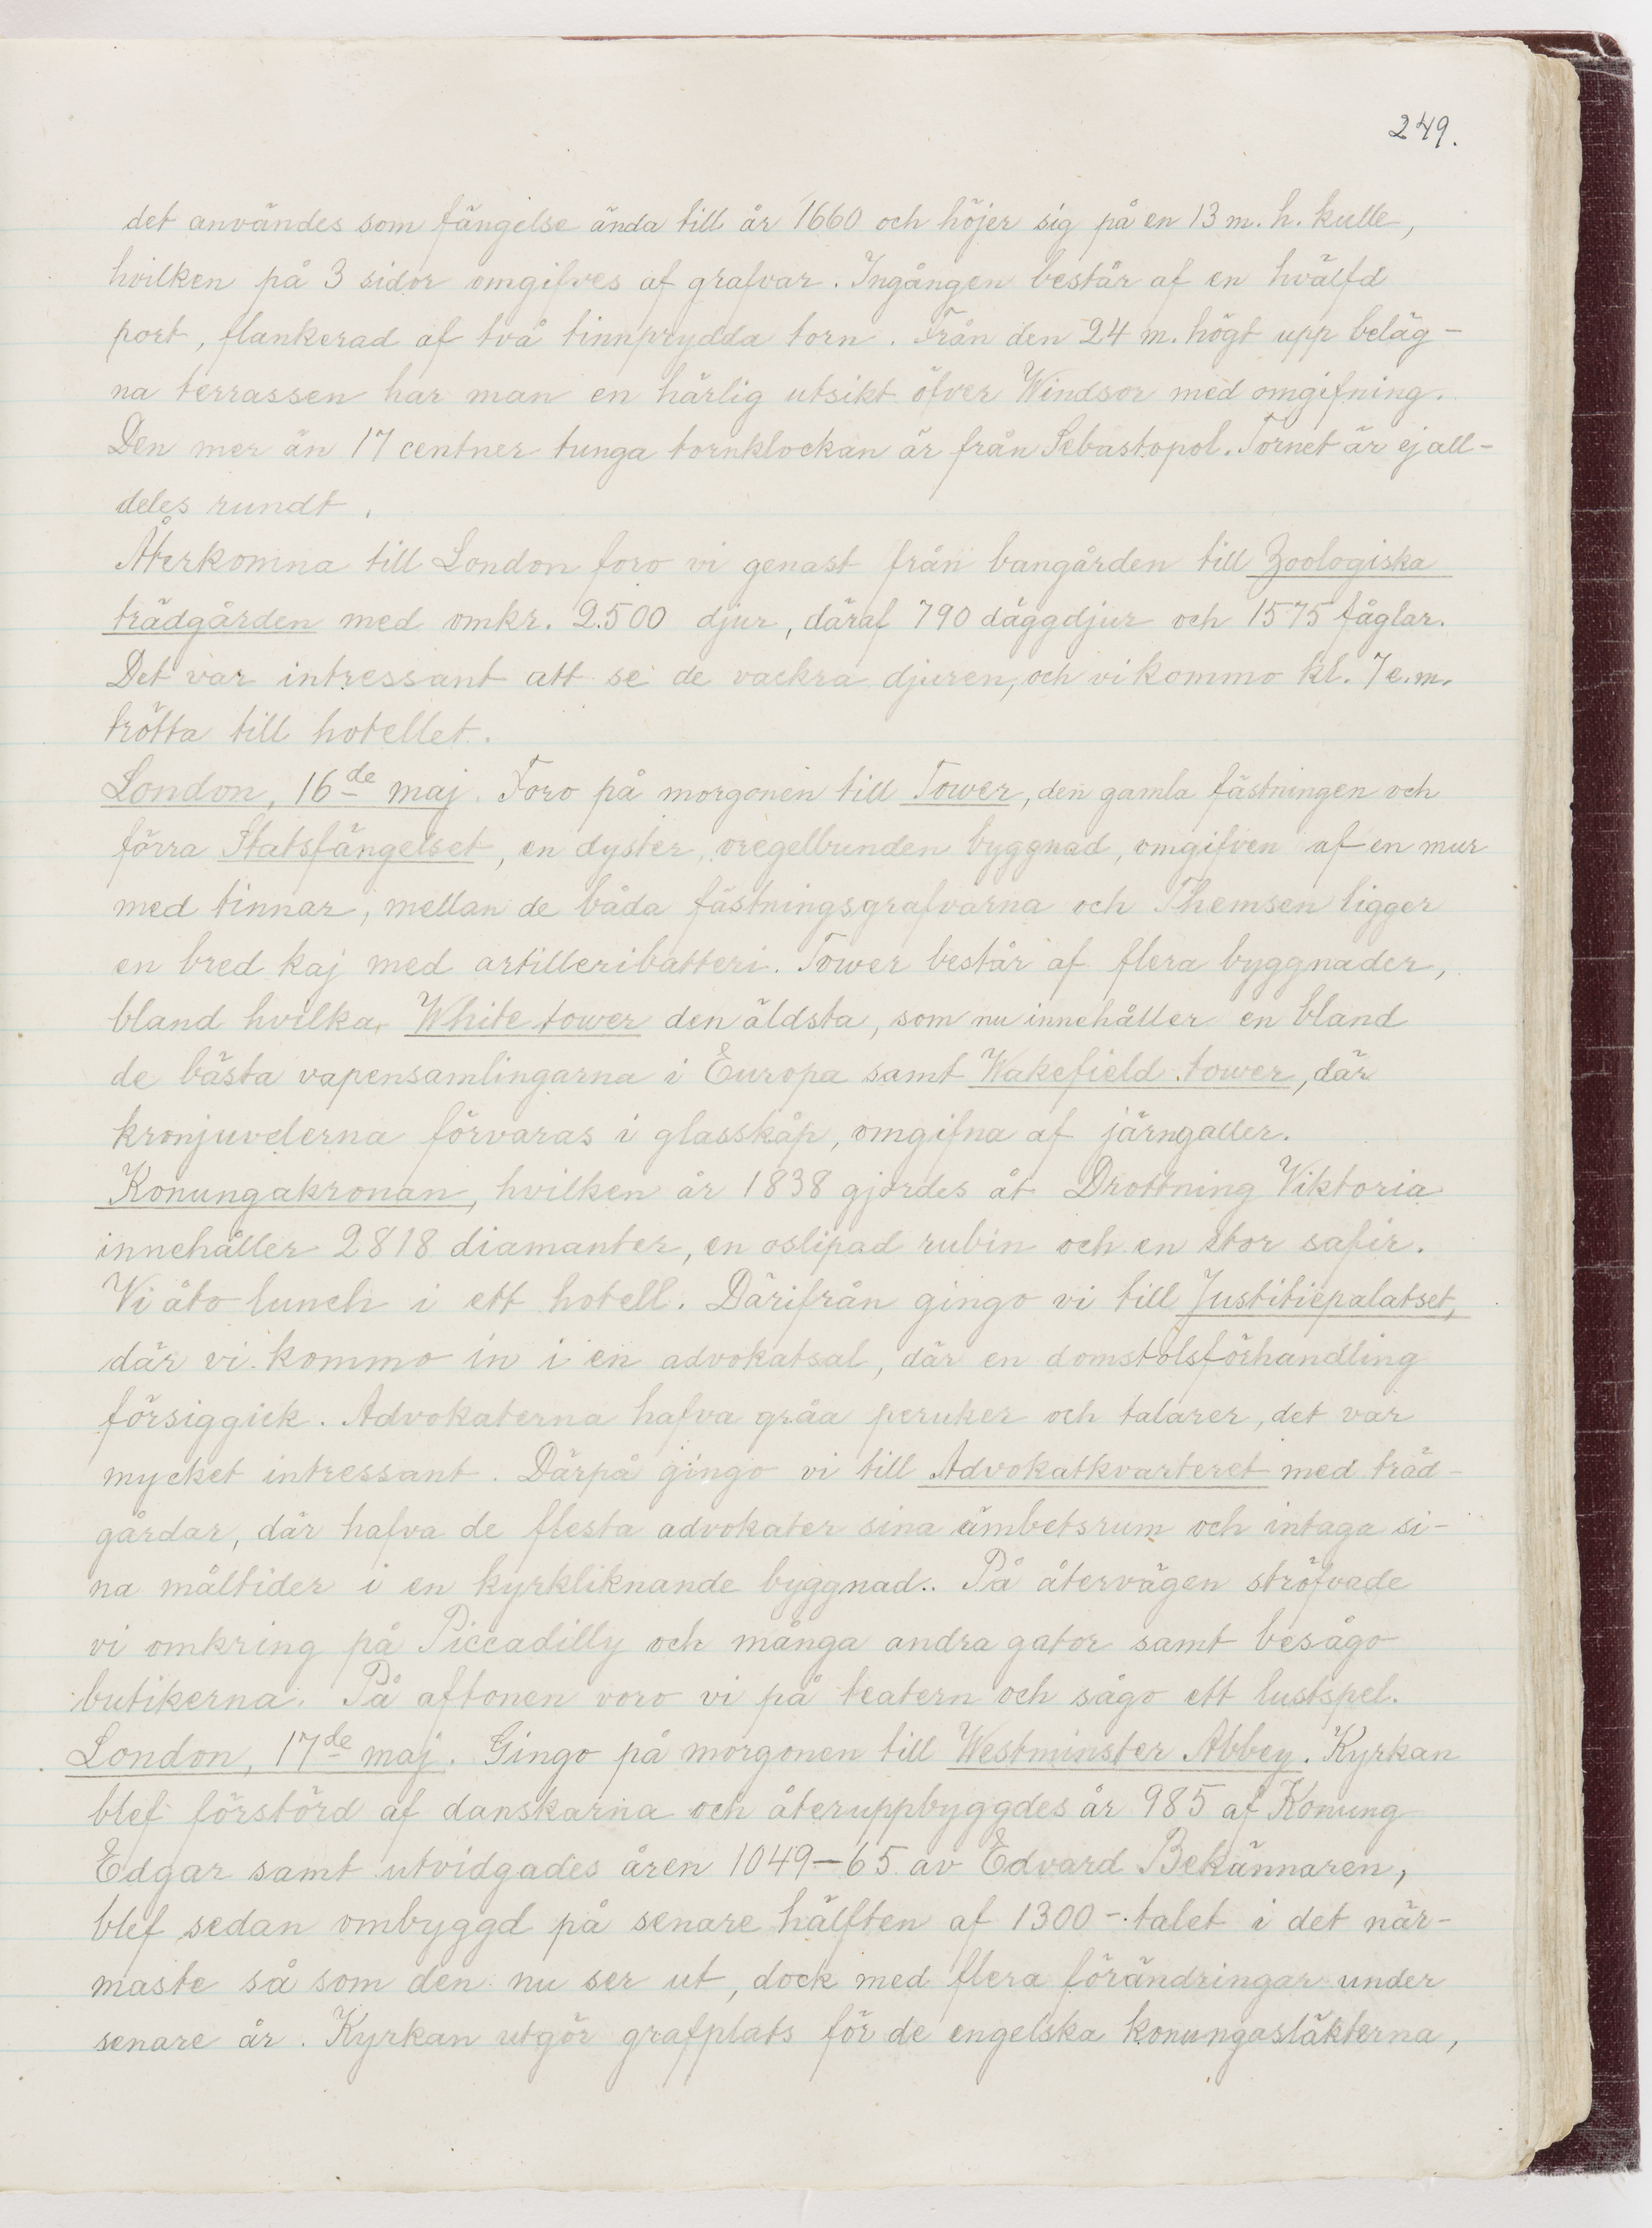 249.
det användes som fängelse ända till år 1660 och höjer sig på en 13 m. h. kulle,
hvilken på 3 sidor omgifves af grafvar. Ingången består af en hvälfd
port, flankerad af två tinnprydda torn. Från den 24 m. högt upp beläg-
na terrassen har man en härlig utsikt öfver Windsor med omgifning.
Den mer än 17 centner tunga tornklockan är från Sebastopol. Tornet är ej all-
deles rundt.
Återkomna till London foro vi genast från bangården till Zoologiska
trädgården med omkr. 2.500 djur, däraf 790 däggdjur och 1575 fåglar.
Det var intressant att se de vackra djuren, och vi kommo kl. 7 e.m.
trötta till hotellet.
London, 16de maj. Foro på morgonen till Tower, den gamla fästningen och
förra Statsfängelset, en dyster, oregelbunden byggnad, omgifven af en mur
med tinnar, mellan de båda fästningsgrafvarna och Themsen ligger
en bred kaj med artilleribatteri. Tower består af flera byggnader,
bland hvilka, White tower den äldsta, som nu innehåller en bland
de bästa vapensamlingarna i Europa samt Wakefield tower, där
kronjuvelerna förvaras i glasskåp, omgifna af järngaller.
Konungakronan, hvilken år 1838 gjordes åt Drottning Viktoria
innehåller 2818 diamanter, en oslipad rubin och en stor safir.
Vi åto lunch i ett hotell. Därifrån gingo vi till Justitiepalatset,
där vi kommo in i en advokatsal, där en domstolsförhandling
försiggick. Advokaterna hafva gråa peruker och talarer, det var
mycket intressant. Därpå gingo vi till Advokatkvarteret med träd-
gårdar, där hafva de flesta advokater sina ämbetsrum och intaga si-
na måltider i en kyrkliknande byggnad.. På återvägen ströfvade
vi omkring på Piccadilly och många andra gator samt besågo
butikerna. På aftonen voro vi på teatern och sågo ett lustspel.
London, 17de maj. Gingo på morgonen till Westminster Abbey. Kyrkan
blef förstörd af danskarna och återuppbyggdes år 985 af Konung
Edgar samt utvidgades åren 1049–65 av Edvard Bekännaren,
blef sedan ombyggd på senare hälften af 1300-talet i det när-
maste så som den nu ser ut, dock med flera förändringar under
senare år. Kyrkan utgör grafplats för de engelska konungasläkterna,